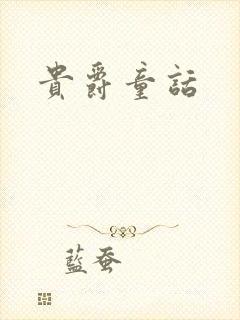 貴爵童話
藍蚕